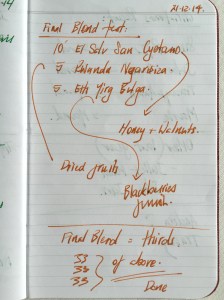 21-12-14.
Final Blend feat.
10 El Salv San Cyetano
5 Rwanda
5. Eth Yirg Edga.
Honey + Walnuts.
Dried fruits
Blackberries
Final Blend = Thirds.
33
33 of above.
33
Done